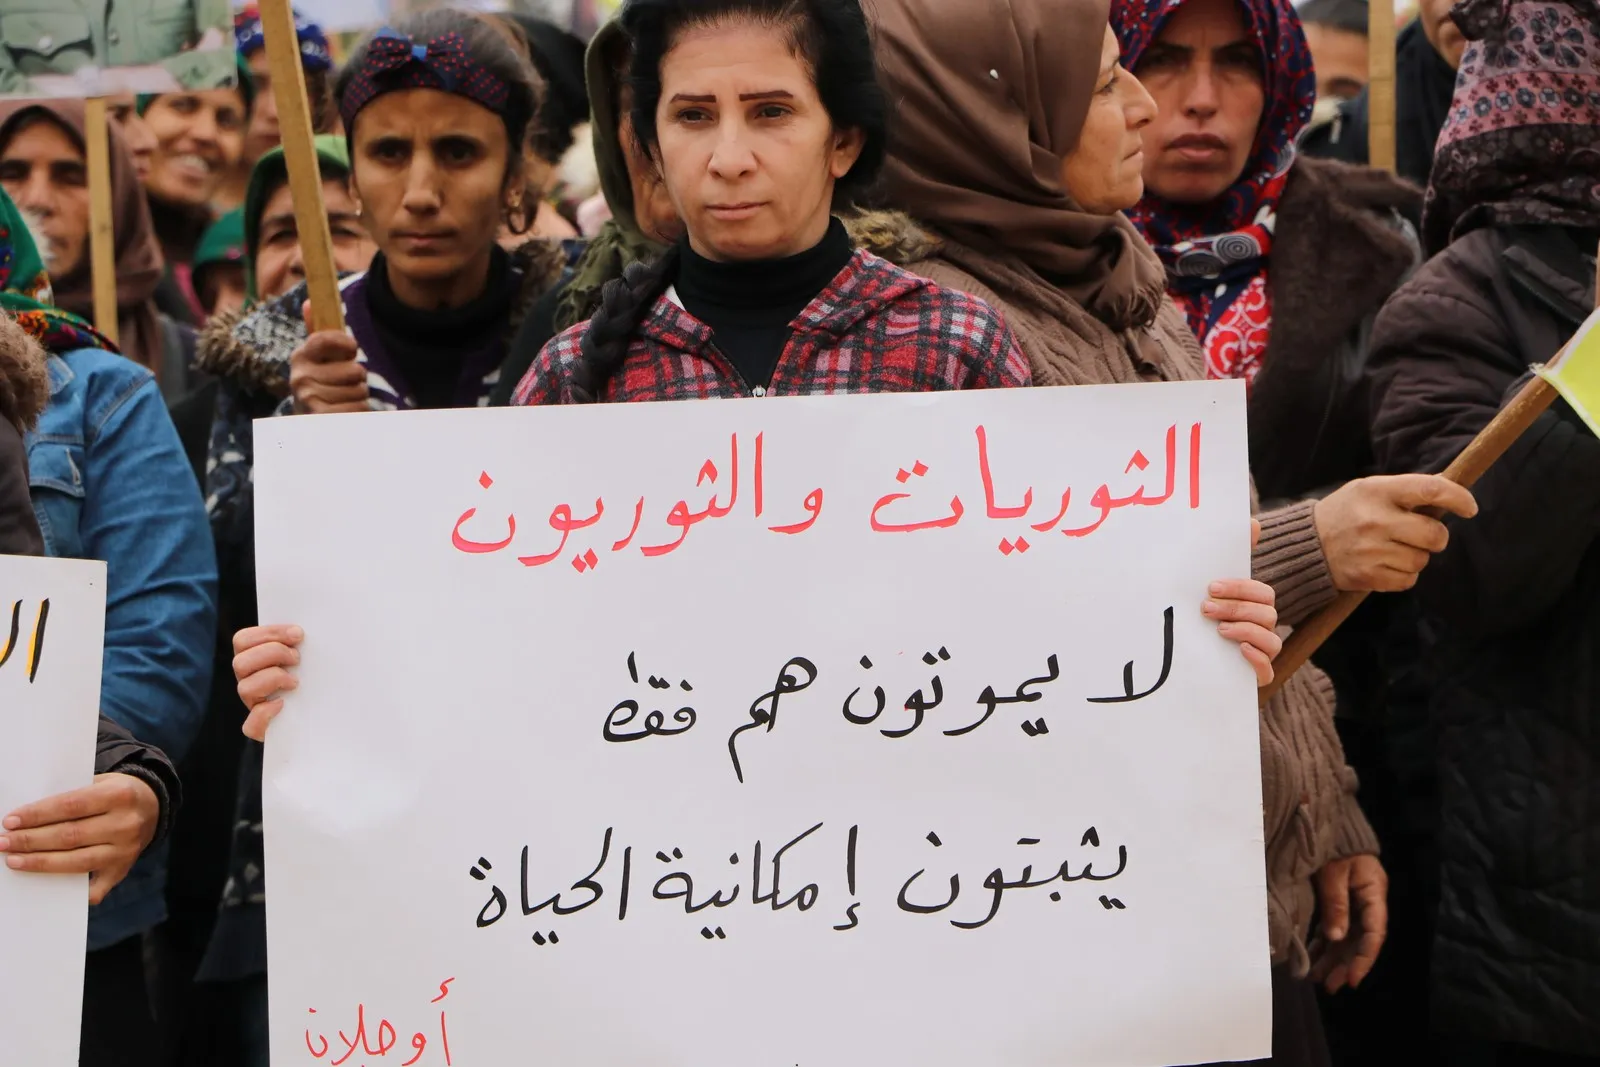 الثوريات والثوريون
لا يموتون هم فقط
يثبتون إمكانية الحياة
أوجلان